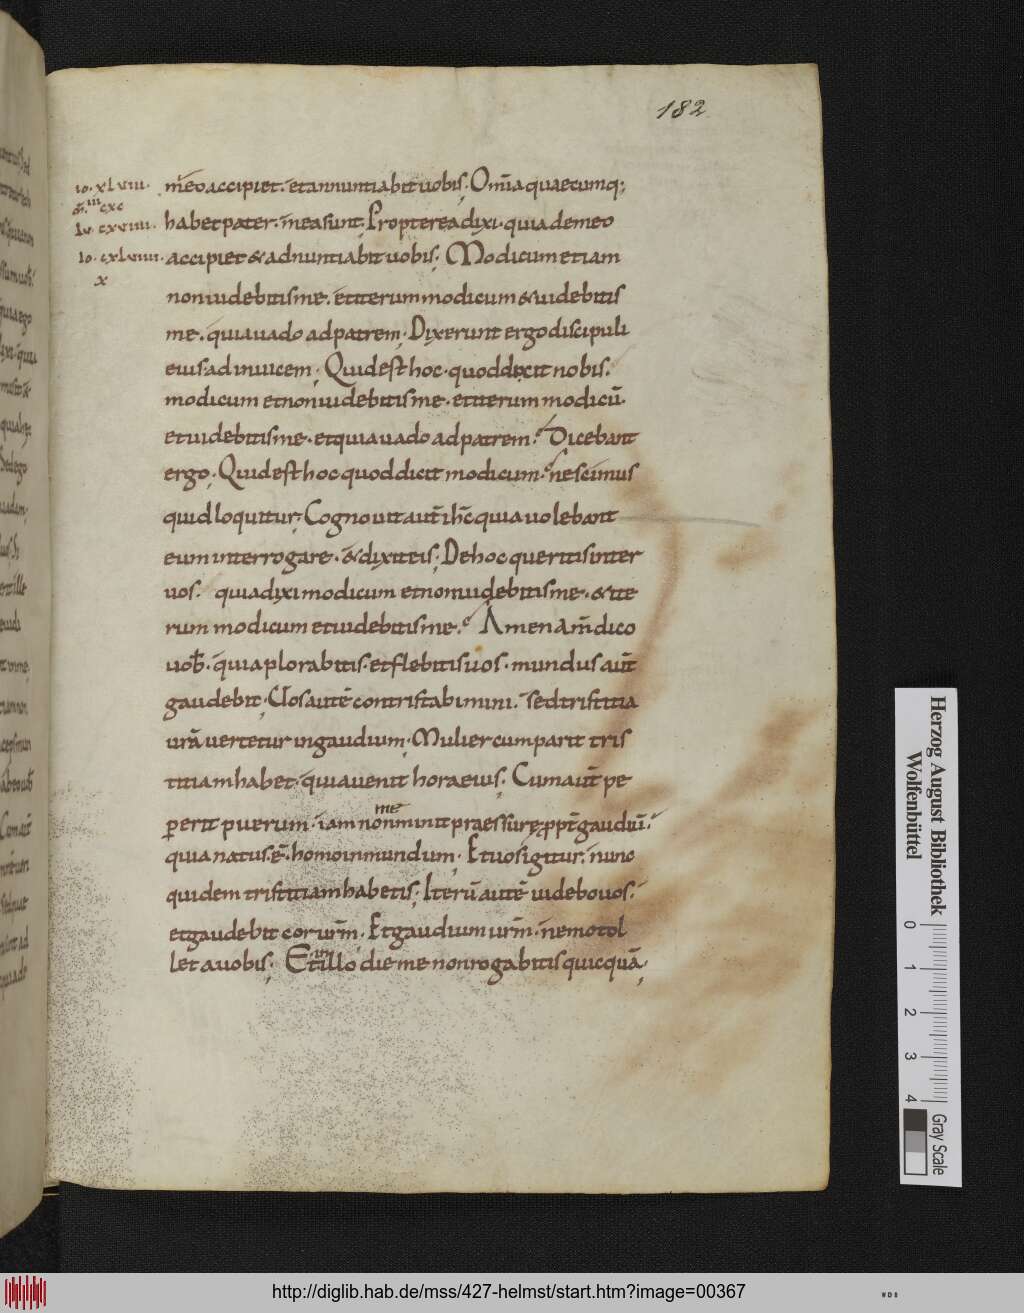 182
io · xlviii · meo accipiet · et annuntiabit uobis ; Om̄ia quaecumq;
m̄ · cxc
lu · cxviiii · habet pater · mea sunt ; Propterea dixi · quia de meo
io · cxlviiii · accipiet & adnuntiabit uobis ; Modicum et iam
x
non uidebitis me · et iterum modicum & uidebitis
me · quia uado ad patrem ; Dixerunt ergo discipuli
eius · ad inuicem ; Quid est hoc · quod dicit nobis ·
modicum et non uidebitis me · et iterum modicū ·
et uidebitis me · et quia uado ad patrem · Dicebant
ergo ; Quid est hoc quod dicit modicum · nescimus
quid loquitur ; Cognouit aut̄ ih̄c quia uolebant
eum interrogare · & dixit eis ; De hoc queritis inter
uos · quia dixi modicum et non uidebitis me · & ite
rum modicum et uidebitis me · Amen am̄ dico
uob̄ · quia plorabitis · et flebitis uos · mundus aut̄
gaudebit ; Uos autē contristabimini · sed tristitia
ur̄a uertetur in gaudium ; Mulier cum parit tris
titiam habet · quia uenit hora eius ; Cum aut̄ pe
pererit puerum · iam non meminit praessurę ppt̄ gaudiū ·
quia natus · ē · homo in mundum ; Et uos igitur · nunc
quidem tristitiam habetis ; Iterū autē uidebo uos ·
et gaudebit cor ur̄m · Et gaudium ur̄m · nemo tol
let a uobis ; Et in illo die me non rogabitis quicquā ;
Herzog August Bibliothek
Wolfenbüttel
0 1 2 3 4
Gray Scale
http://diglib.hab.de/mss/427-helmst/start.htm?image=00367